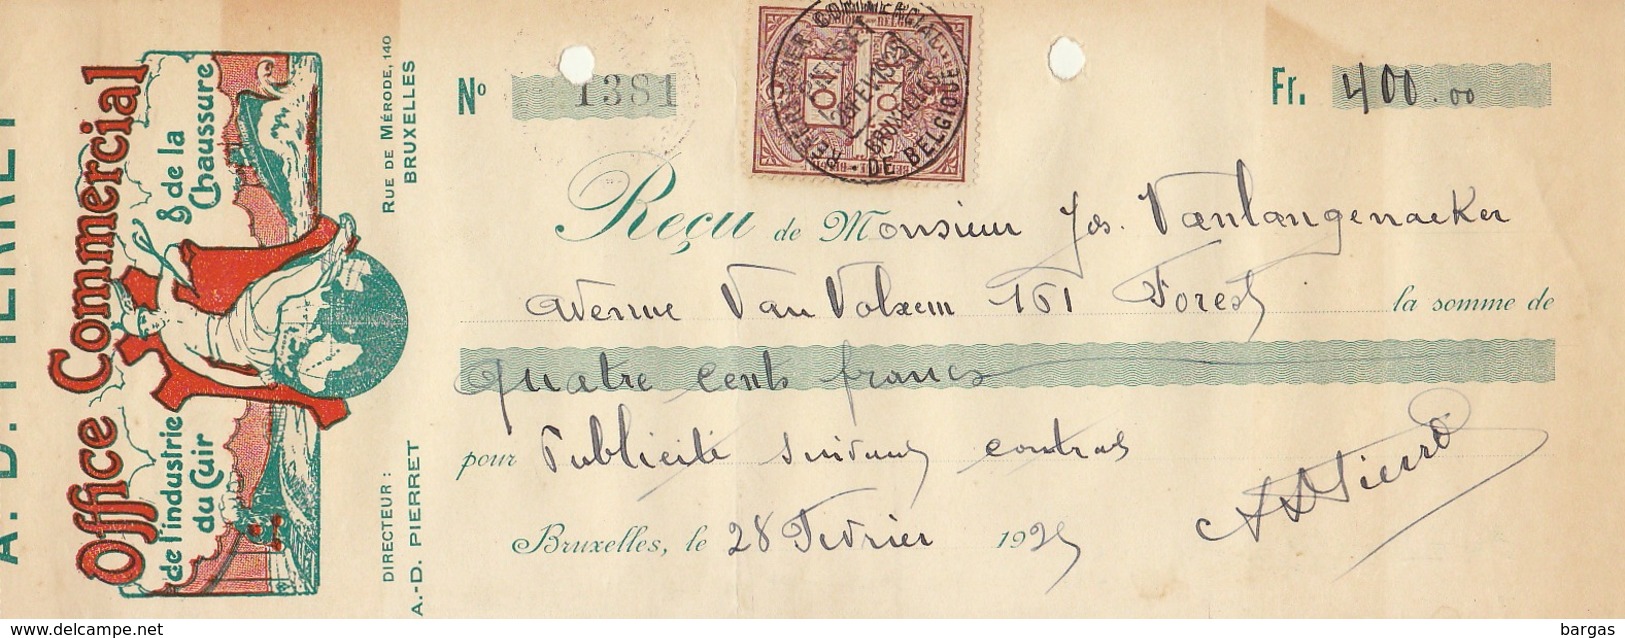 A.-D. PIERRET
Office Commercial
de l'industrie & de la
du Cuir Chaussure
DIRECTEUR : Rue de Mérode, 140
A.-D. PIERRET BRUXELLES
No 1381
Fr. 400.00
Reçu de Monsieur Jos. Vanlangenacker
Avenue Van Volxem 161 Forest la somme de
quatre cents francs
pour Publicité suivant contrat
Bruxelles, le 28 Février 1925
ADPierret
delcampe.net
bargas